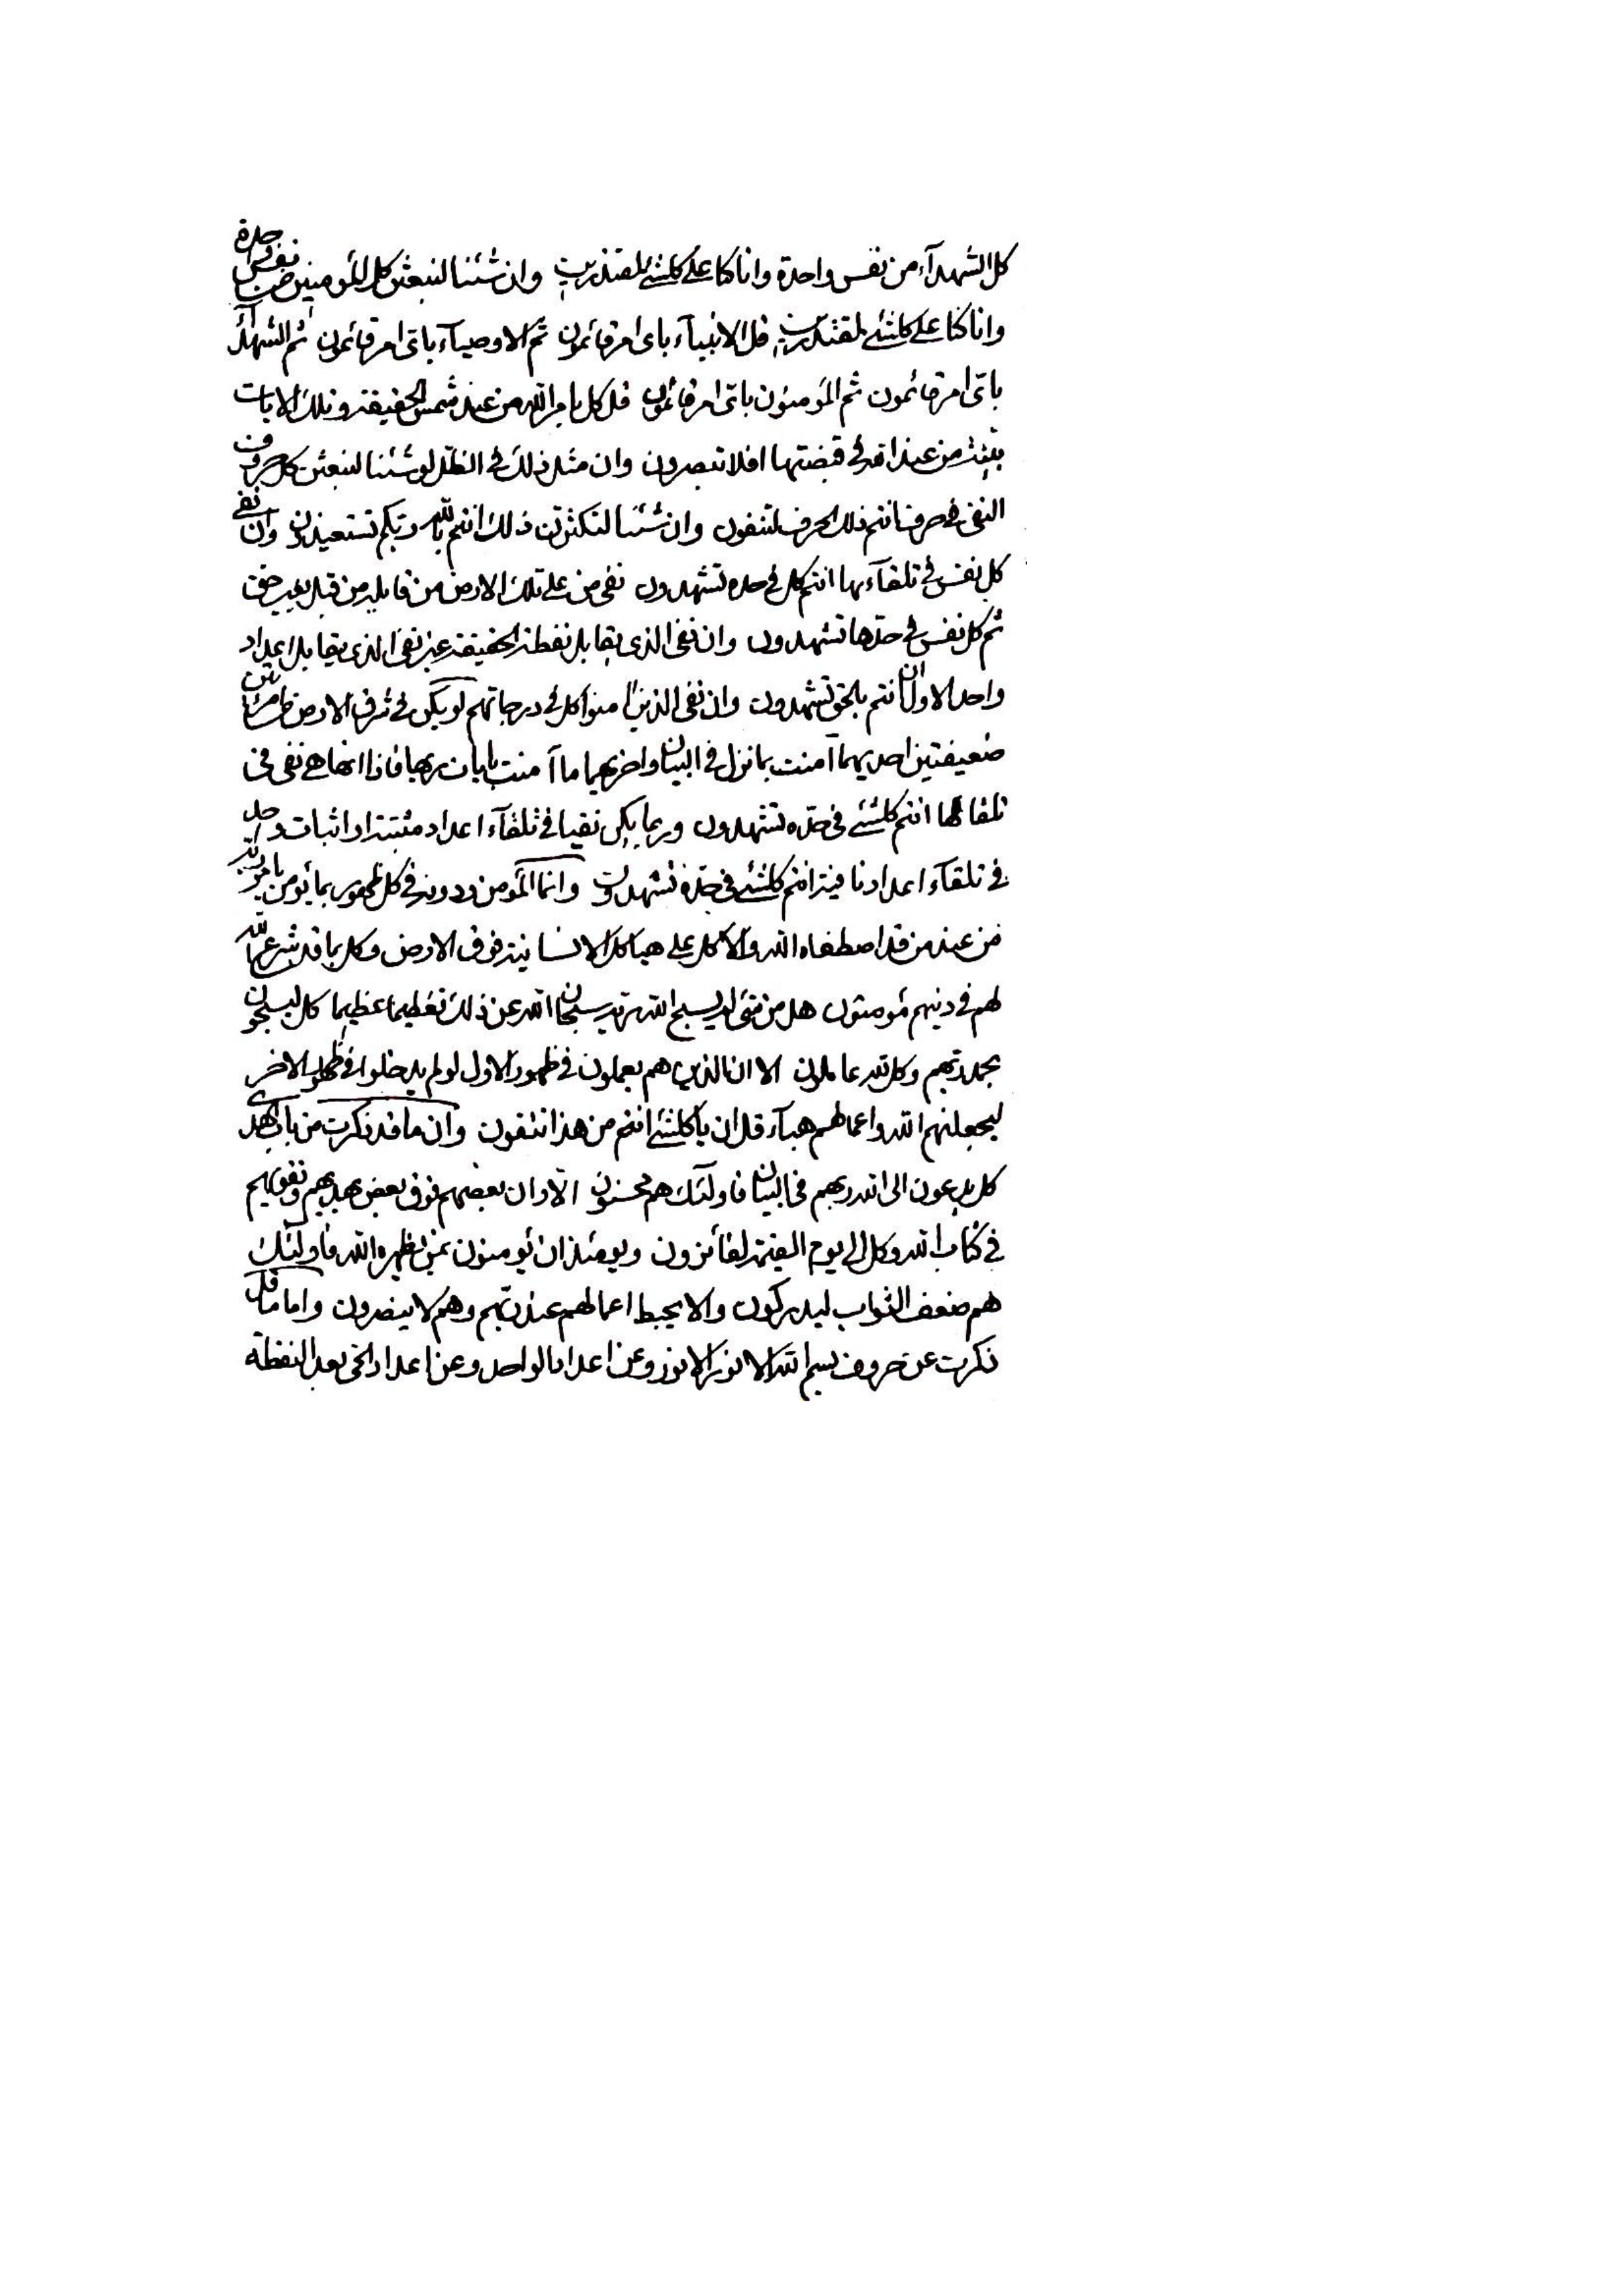 كل الشهدآء من نفس واحدة وانا كنا على كلشئ لمقتدرين وان شئنا لنبعثن كل المؤمنين من نفس واحدة
وانا كنا على كلشئ لمقتدرين قل الانبيآء باى امر قائمون ثم الاوصيآء باى امر قائمون ثم الشهدآء
باى امر قائمون ثم المؤمنون باى امر قائمون قل كل بامر الله من عند شمس الحقيقة وتلك الايات
من عند الله فى قبضتها افلا تبصرون وان مثل ذلك فى الظل لو شئنا لنبعثن كل حروف
النفى فى حرف انتم ذلك الحرف لتنفون وان شئنا لنكثرن ذلك انتم بالله ربكم تستعيذون وان نفى
كل نفس فى تلقآءها انتم كل فى حده تشهدون نفى من على تلك الارض من قابله من قبل بغير حق
ثم كل نفس فى حدها تشهدون وان نفى الذى يقابل نقطة الحقيقة غير نفى الذى يقابل اعداد
واحد الاول ان انتم بالحق تشهدون وان نفى الذين امنوا كل فى درجاتهم لو يكن فى شرق الارض
ضعيفتين احديهما آمنت بما نزل فى البيان واخريهما ما آمنت بايات ربها فاذا انها هى نفى فى
تلقائها انتم كلشئ فى حده تشهدون وربما يكن نفيا فى تلقآء اعداد مثبتة او اثبات واحد
فى تلقآء اعداد نافية انتم كلشئ فى حده تشهدون وانما المؤمن ودونه فى كل ظهور بما يؤمن بامر الله
من عند من قد اصطفاه الله والا كل على هياكل الانسانية فوق الارض وكل بما قد شرع الله
لهم فى دينهم مؤمنون هل من شئ لم يسبح الله ربه سبحان الله عن ذلك تعظيما عظيما كل ليسبحون
بحمد ربهم وكل لله عاملون الا ان الذين هم يعملون فى ظهور الاول لو لم يدخلوا فى ظهور الاخرى
ليجعلنهم الله واعمالهم هبآء قل ان يا كلشئ انتم من هذا تتقون وان ما قد ذكرت من باب هدى
كل يدعون الى الله ربهم فى البيان فاولئك هم محسنون الا وان بعضهم فوق بعض بهديهم وتقويهم
فى كتاب الله وكل الى يوم القيمة لفائزون ويومئذ ان يؤمنون بمن يظهره الله فاولئك
هم ضعف الثواب ليدركون والا يحبط اعمالهم عند ربهم وهم لا ينصرون واما ما قد
ذكرت عن حروف بسم الله الانور الانور وعن اعداد الواحد وعن اعداد الحى بعد النقطة